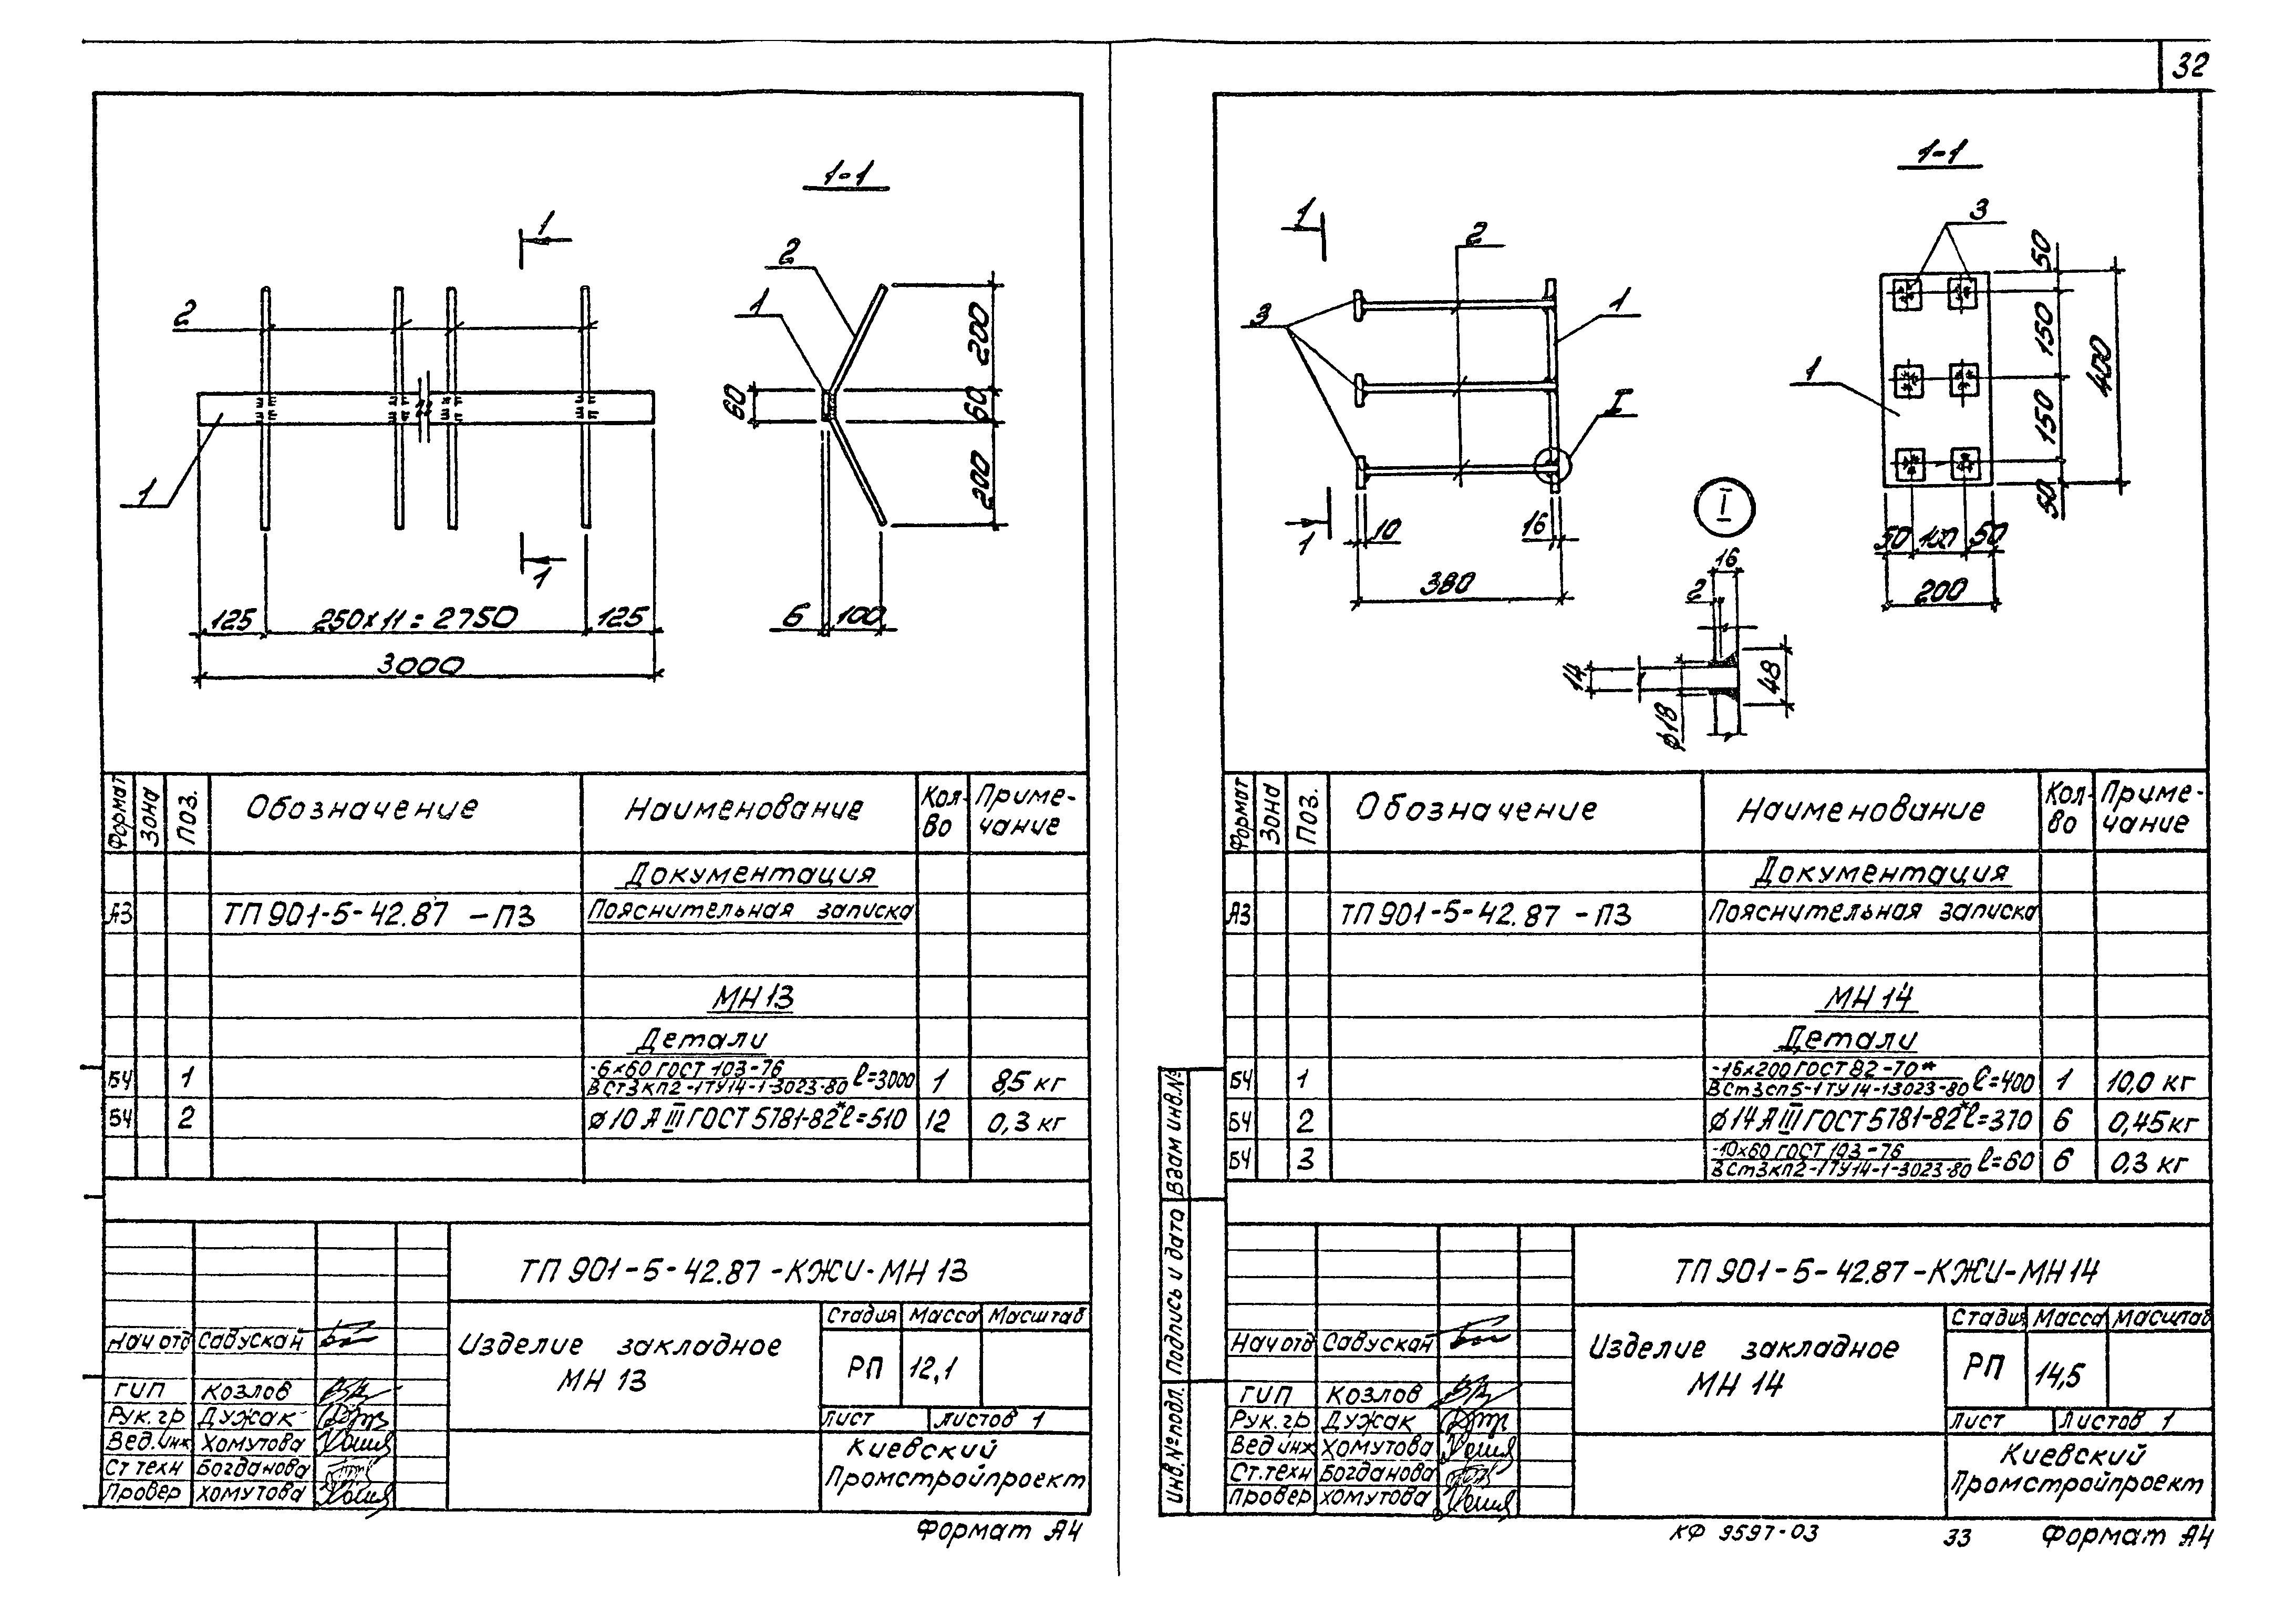 32
1-1
1
2
1
2
1
1
200
60
60
200
125
250×11=2750
125
3000
6
100
Формат
Зона
Поз.
Обозначение
Наименование
Кол-во
Примечание
Документация
А3
ТП 901-5-42.87 -ПЗ
Пояснительная записка
МН 13
Детали
БЧ 1 -6×60 ГОСТ 103-76 ℓ=3000 1 8,5 кг
ВСт3кп2-1 ТУ14-1-3023-80
БЧ 2 ⌀10 АIII ГОСТ 5781-82* ℓ=510 12 0,3 кг
ТП 901-5-42.87-КЖИ-МН 13
Изделие закладное
МН 13
Стадия Масса Масштаб
РП 12,1
Лист Листов 1
Киевский
Промстройпроект
Нач отд Савускан
ГИП Козлов
Рук. гр Дужак
Вед. инж Хомутова
Ст техн Богданова
Провер Хомутова
Формат А4
1-1
1
2
3
1
I
1
10
16
380
3
1
50
150
150
50
400
50
100
50
200
I
16
2
14
⌀18
48
Формат
Зона
Поз.
Обозначение
Наименование
Кол-во
Примечание
Документация
А3
ТП 901-5-42.87 -ПЗ
Пояснительная записка
МН 14
Детали
БЧ 1 -16×200 ГОСТ 82-70* ℓ=400 1 10,0 кг
ВСт3сп5-1 ТУ14-13023-80
БЧ 2 ⌀14 АIII ГОСТ 5781-82* ℓ=370 6 0,45 кг
БЧ 3 -10×60 ГОСТ 103-76 ℓ=60 6 0,3 кг
ВСт3кп2-1 ТУ14-1-3023-80
ТП 901-5-42.87-КЖИ-МН 14
Изделие закладное
МН 14
Стадия Масса Масштаб
РП 14,5
Лист Листов 1
Киевский
Промстройпроект
Нач отд Савускан
ГИП Козлов
Рук. гр Дужак
Вед инж Хомутова
Ст. техн Богданова
Провер Хомутова
Взам инв. №
Подпись и дата
Инв. № подл.
КФ 9597-03
33
Формат А4